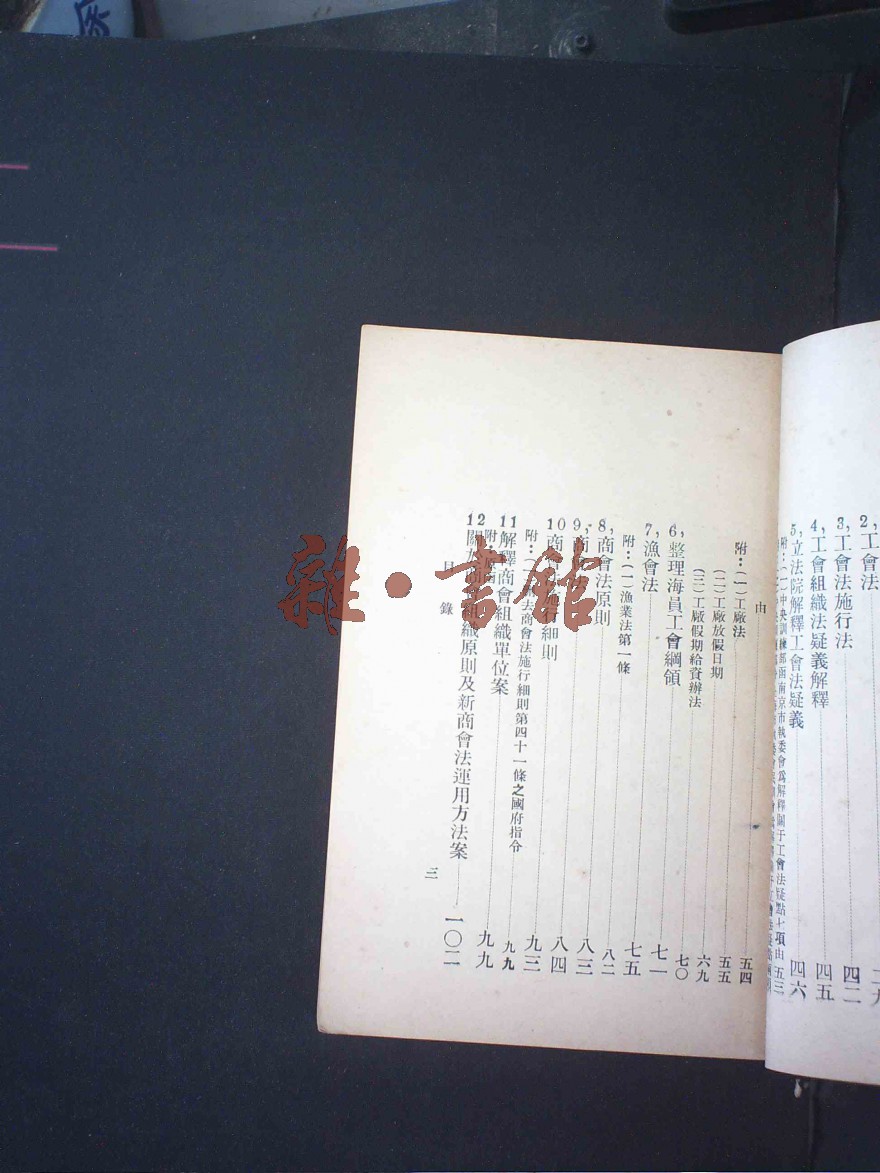 2,工會法
3,工會法施行法 四二
4,工會組織法疑義解釋 四五
5,立法院解釋工會法疑義 四六
附:(一)中央訓練部函南京市執委會爲解釋關于工會法疑點七項由 五三
由
附:(一)工廠法 五四
(二)工廠放假日期 五五
(三)工廠假期給資辦法 六九
6,整理海員工會綱領 七〇
7,漁會法 七一
附:(一)漁業法第一條 七五
8,商會法原則 八二
9,商 八三
10商 施行細則 八四
附:(一) 去商會法施行細則第四十一條之國府指令 九三
11解釋商會組織單位案 九九
附: 九九
12關於商會組織原則及新商會法運用方法案 一〇二
目錄
三
雜·書館